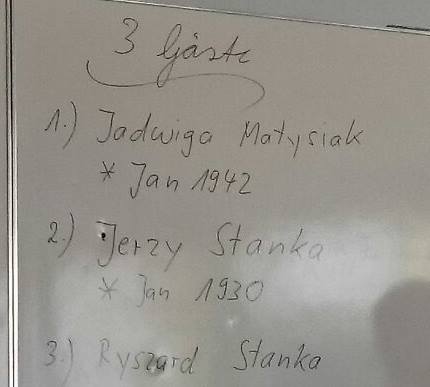 3 Gäste
1.) Jadwiga Matysiak
* Jan 1942
2.) Jerzy Stanka
* Jan 1930
3.) Ryszard Stanka